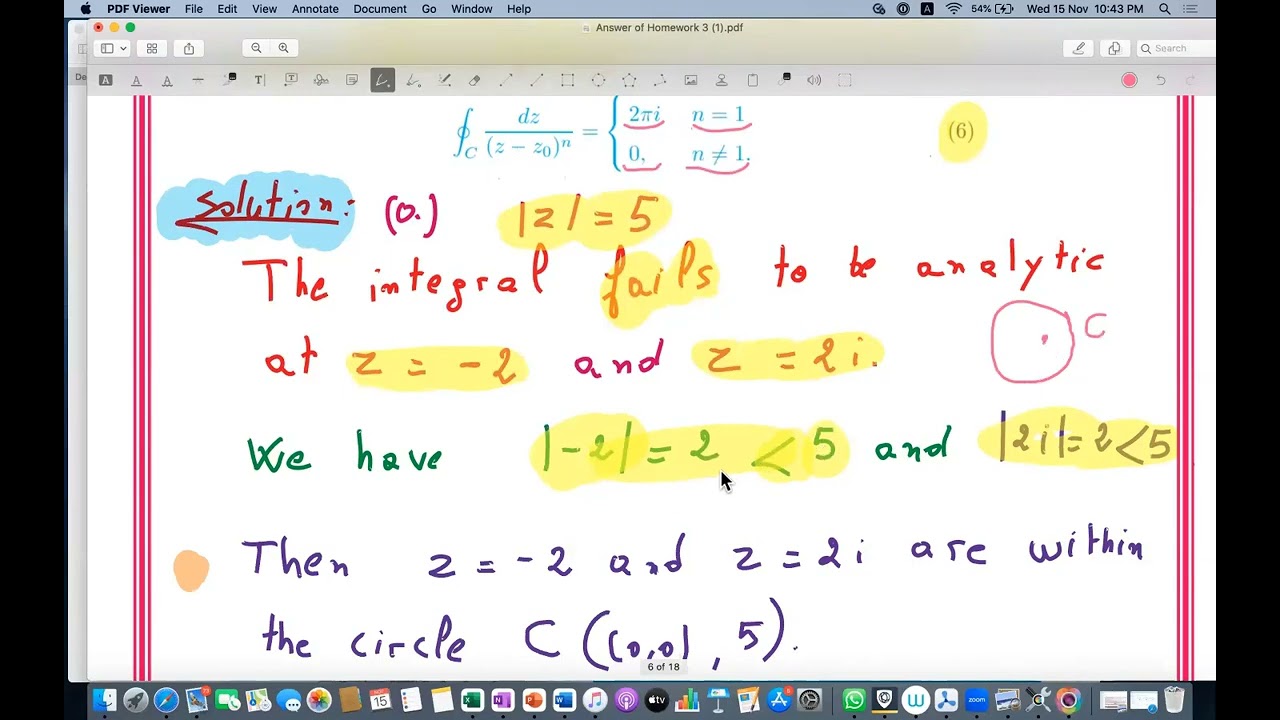 PDF Viewer File Edit View Annotate Document Go Window Help 54% Wed 15 Nov 10:43 PM
Answer of Homework 3 (1).pdf
Search
De
∮_C dz/(z − z₀)ⁿ = { 2πi n = 1
0, n ≠ 1.
(6)
Solution: (a.) |z| = 5
The integral fails to be analytic
at z = -2 and z = 2i.
C
We have |-2| = 2 < 5 and |2i| = 2 < 5
Then z = -2 and z = 2i are within
the circle C ((0,0), 5).
6 of 18